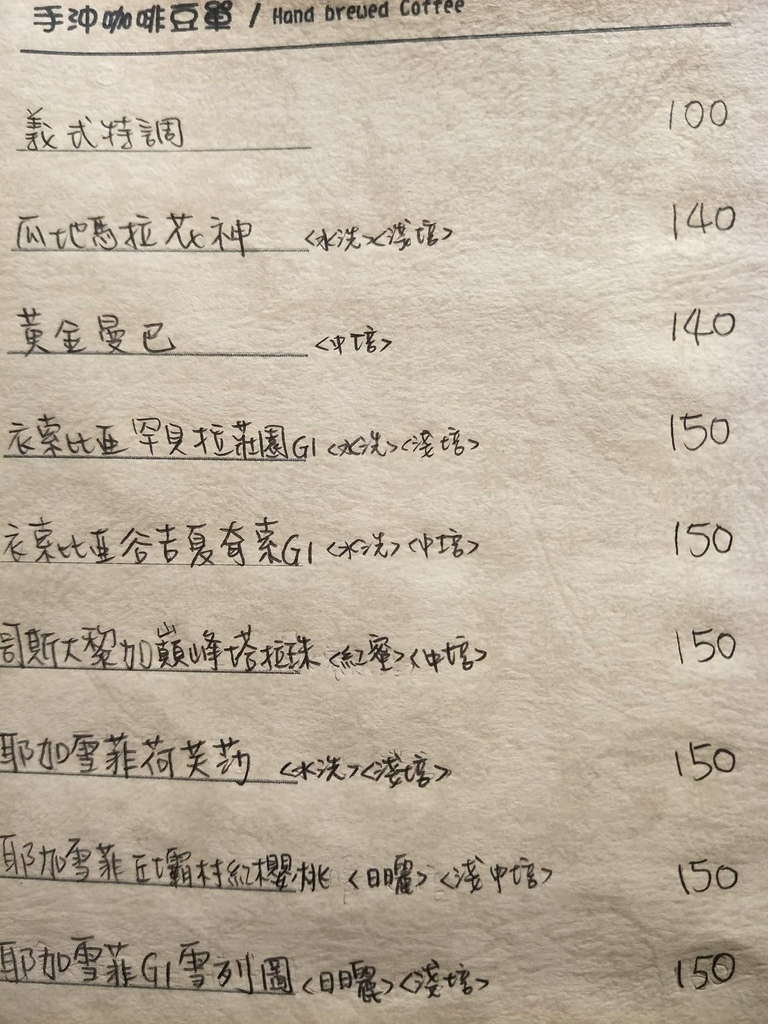 手沖咖啡豆單 / Hand brewed Coffee
義式特調 100
瓜地馬拉花神 <水洗><淺培> 140
黃金曼巴 <中培> 140
衣索比亞罕貝拉莊園G1 <水洗><淺培> 150
衣索比亞谷吉夏奇索G1 <水洗><中培> 150
哥斯大黎加巔峰塔拉珠 <紅蜜><中培> 150
耶加雪菲荷芙莎 <水洗><淺培> 150
耶加雪菲丘壩村紅櫻桃 <日曬><淺中培> 150
耶加雪菲G1雪列圖 <日曬><淺培> 150